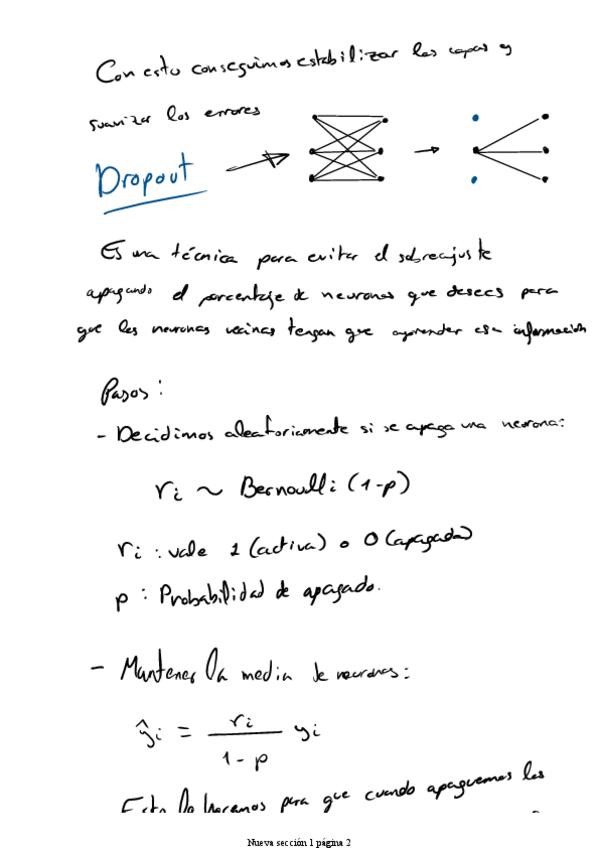 Con esto conseguimos estabilizar las capas y
suavizar los errores
Dropout
Es una técnica para evitar el sobreajuste
apagando el porcentaje de neuronas que desees para
que las neuronas vecinas tengan que aprender esa información
Pasos:
- Decidimos aleatoriamente si se apaga una neurona:
ri ~ Bernoulli (1-p)
ri : vale 1 (activa) o 0 (apagada)
p : Probabilidad de apagado.
- Mantener la media de neuronas:
ŷi = ri / (1 - p) yi
Esto lo haremos para que cuando apaguemos las
Nueva sección 1 página 2